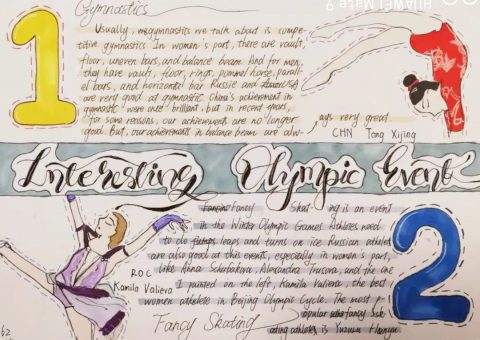 HUAWEI Mate 9
Gymnastics
1
Usually, gymnastics we talk about is compe-
titive gymnastics. In women's part, there are vault,
floor, uneven bars, and balance beam. And for men,
they have vault, floor, rings, pummel horse, parall-
el bars, and horizontal bar. Russie and USA
are very good at gymnastic. China's achievement in
gymnastic were once brilliant, but in recent years,
for some reasons, our achievements are no longer
good. But, our achievements in balance beam are alw-
ays very great.
CHN Tang Xijing
Interesting Olympic Event
Fancy Skating is an event
in the Winter Olympic Games. Athletes need
to do leaps and turns on ice. Russian athletes
are also good at this events, especially in women's part,
like Anna Scherbakova, Alexandra Trusova, and the one
I painted on the left, Kamila Valieva, the best
women athlete in Beijing Olympic Cycle. The most p
opular fancy Sk
ating athletes is Yuzuru Hanyu.
ROC
Kamila Valieva
Fancy Skating
2